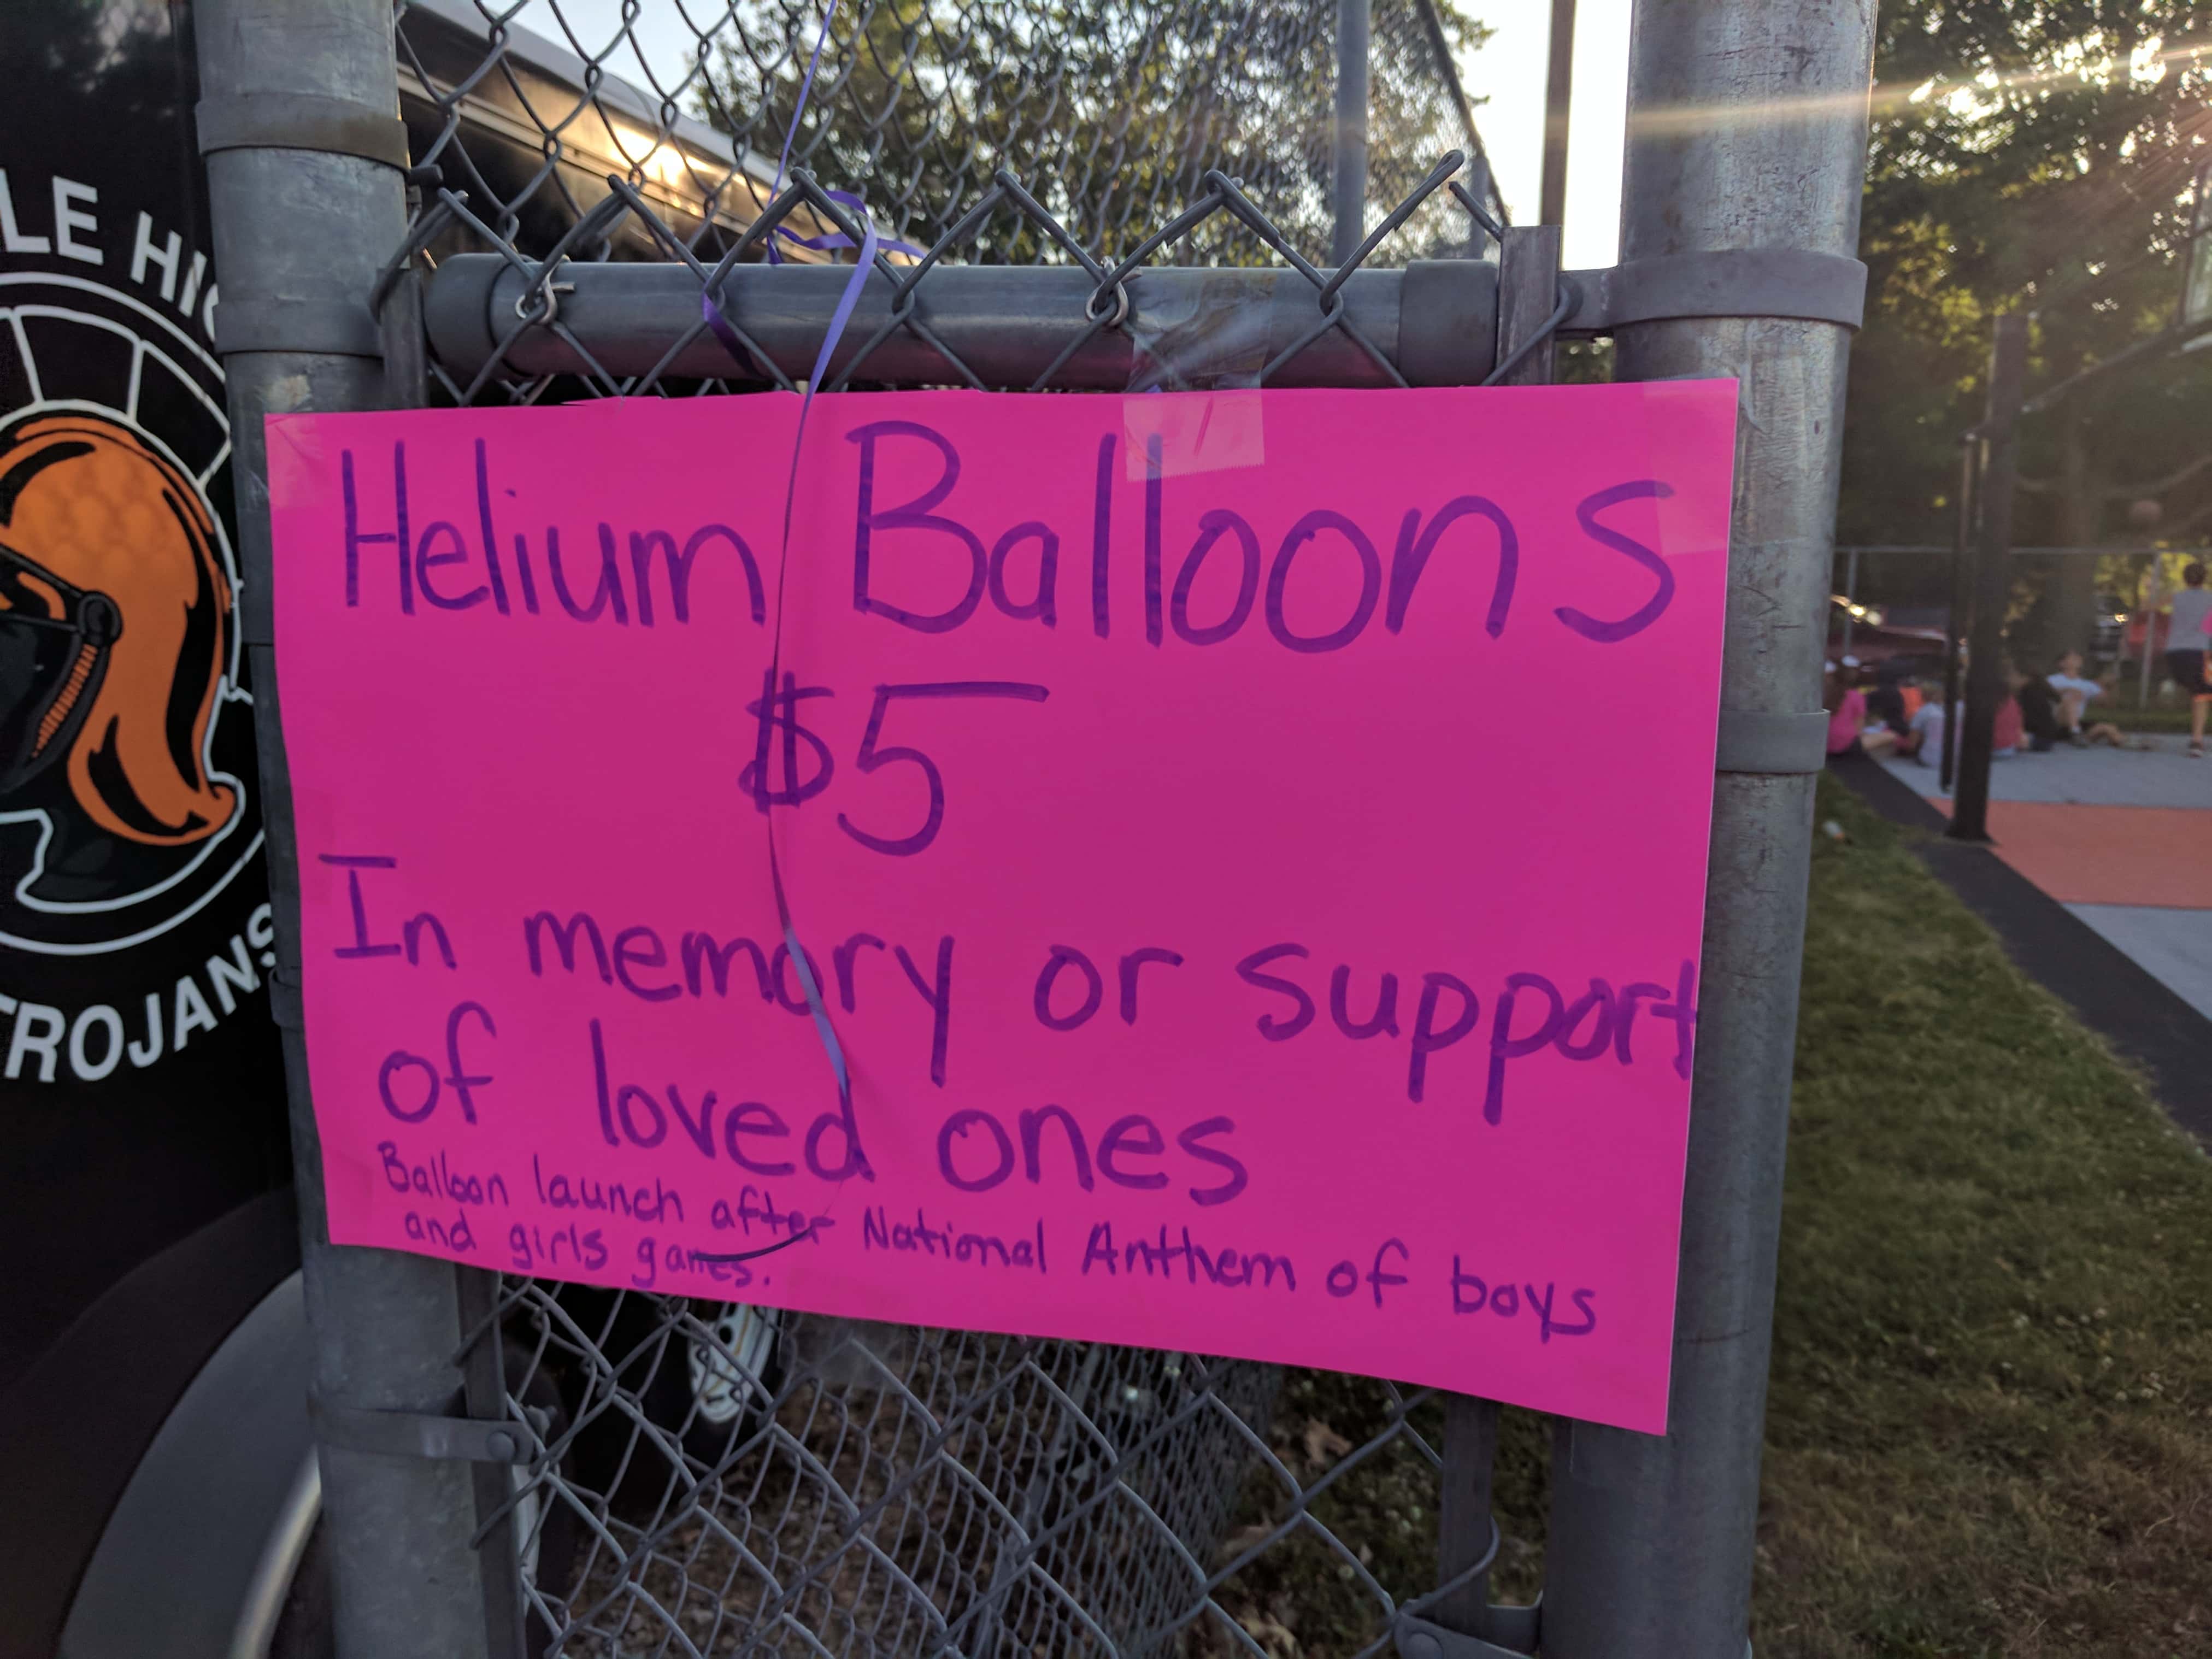 LE HIG
TROJANS
Helium Balloons
$5
In memory or support
of loved ones
Balloon launch after National Anthem of boys
and girls games.